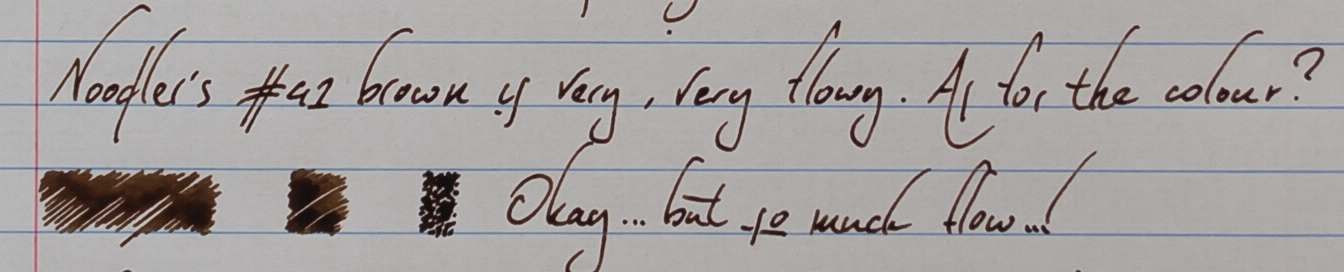 Noodler's #41 brown is very, very flowy. As for the colour?
Okay... but so much flow...!